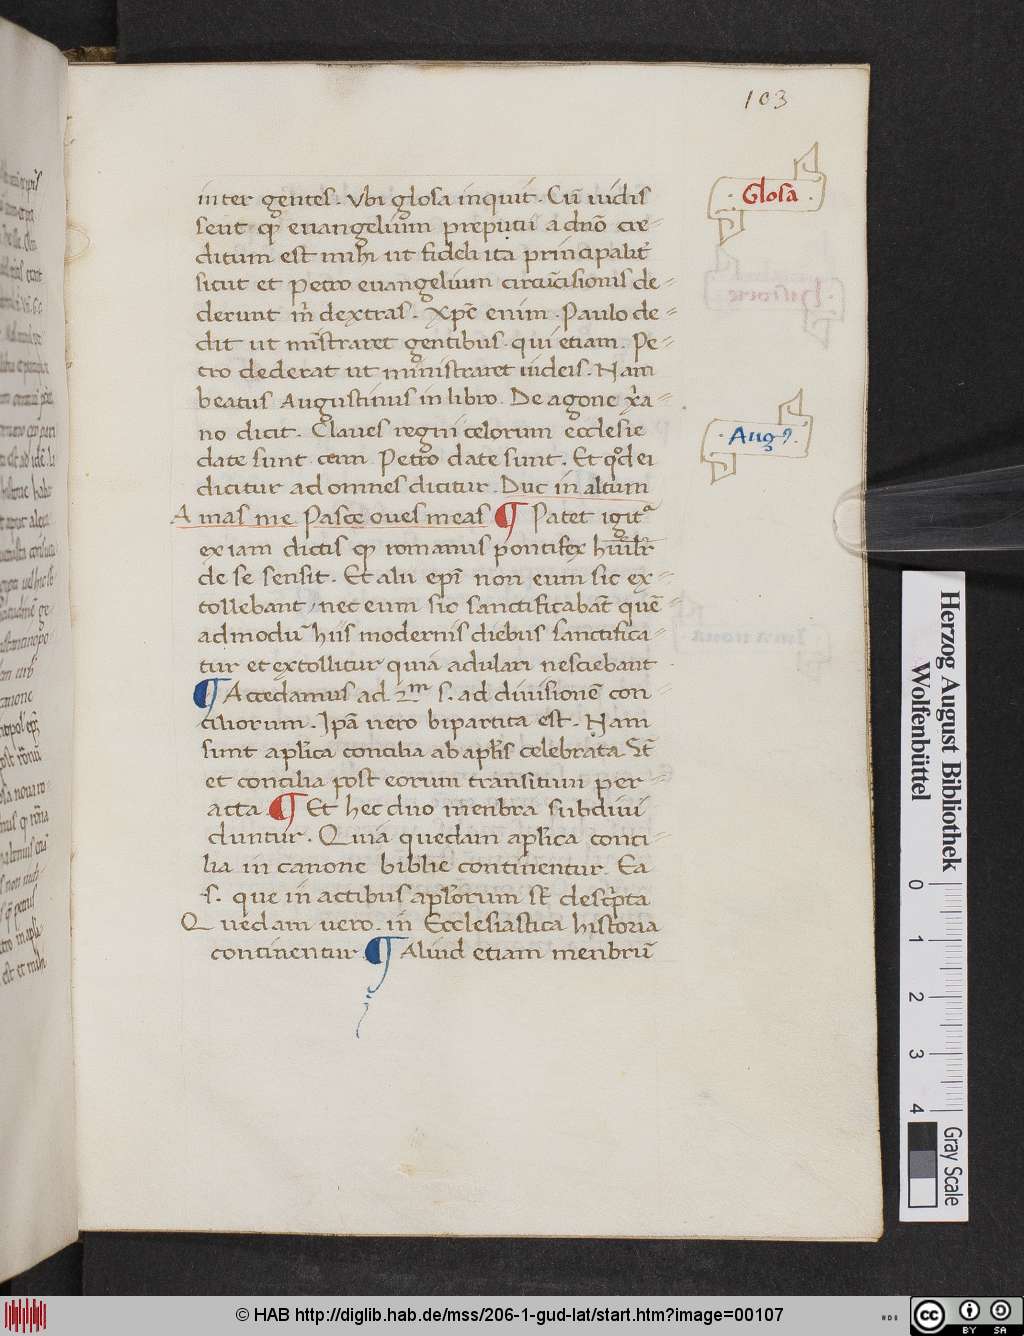 103
inter gentes. Vbi glosa inquit. Cū uidis
sent ꝙ euangelium preputii a dn̄o cre=
ditum est mihi ut fideli ita principalit̄
sicut et Petro euangelium circūcisionis de=
derunt m̄ dextras. Xp̄c enim. Paulo de=
dit ut mīstraret gentibus. qui etiam. Pe=
tro dederat ut ministraret iudeis. Nam
beatus Augustinus in libro. De agone xp̄a=
no dicit. Claues regni celorum ecclesie
date sunt cum Petro date sunt. Et qd̄ ei
dicitur ad omnes dicitur. Duc in altum
Amas me Pasce oues meas ¶ Patet igitᵃ
ex iam dictis ꝙ romanus pontifex hūilr̄
de se sensit. Et alii epī non eum sic ex=
tollebant, nec eum sic sanctificabāt quē=
admodū hiis modernis diebus sanctifica=
tur et extollitur quia adulari nesciebant
¶ Accedamus ad 2m s. ad diuisionē con=
ciliorum. Ipā uero bipartita est. Nam
sunt aplīca concilia ab aplīs celebrata St̄
et concilia post eorum transitum per=
acta. ¶ Et hec duo menbra subdiui
duntur. Quia quedam aplīca conci=
lia in canone biblie continentur. Ea
s. que in actibus aplōrum st̄ descp̄ta
Quedam uero. in Ecclesiastica historia
continentur. ¶ Aliud etiam menbrū
.Glosa.
.Augꝰ.
Herzog August Bibliothek
Wolfenbüttel
0 1 2 3 4
Gray Scale
© HAB http://diglib.hab.de/mss/206-1-gud-lat/start.htm?image=00107
cc BY SA